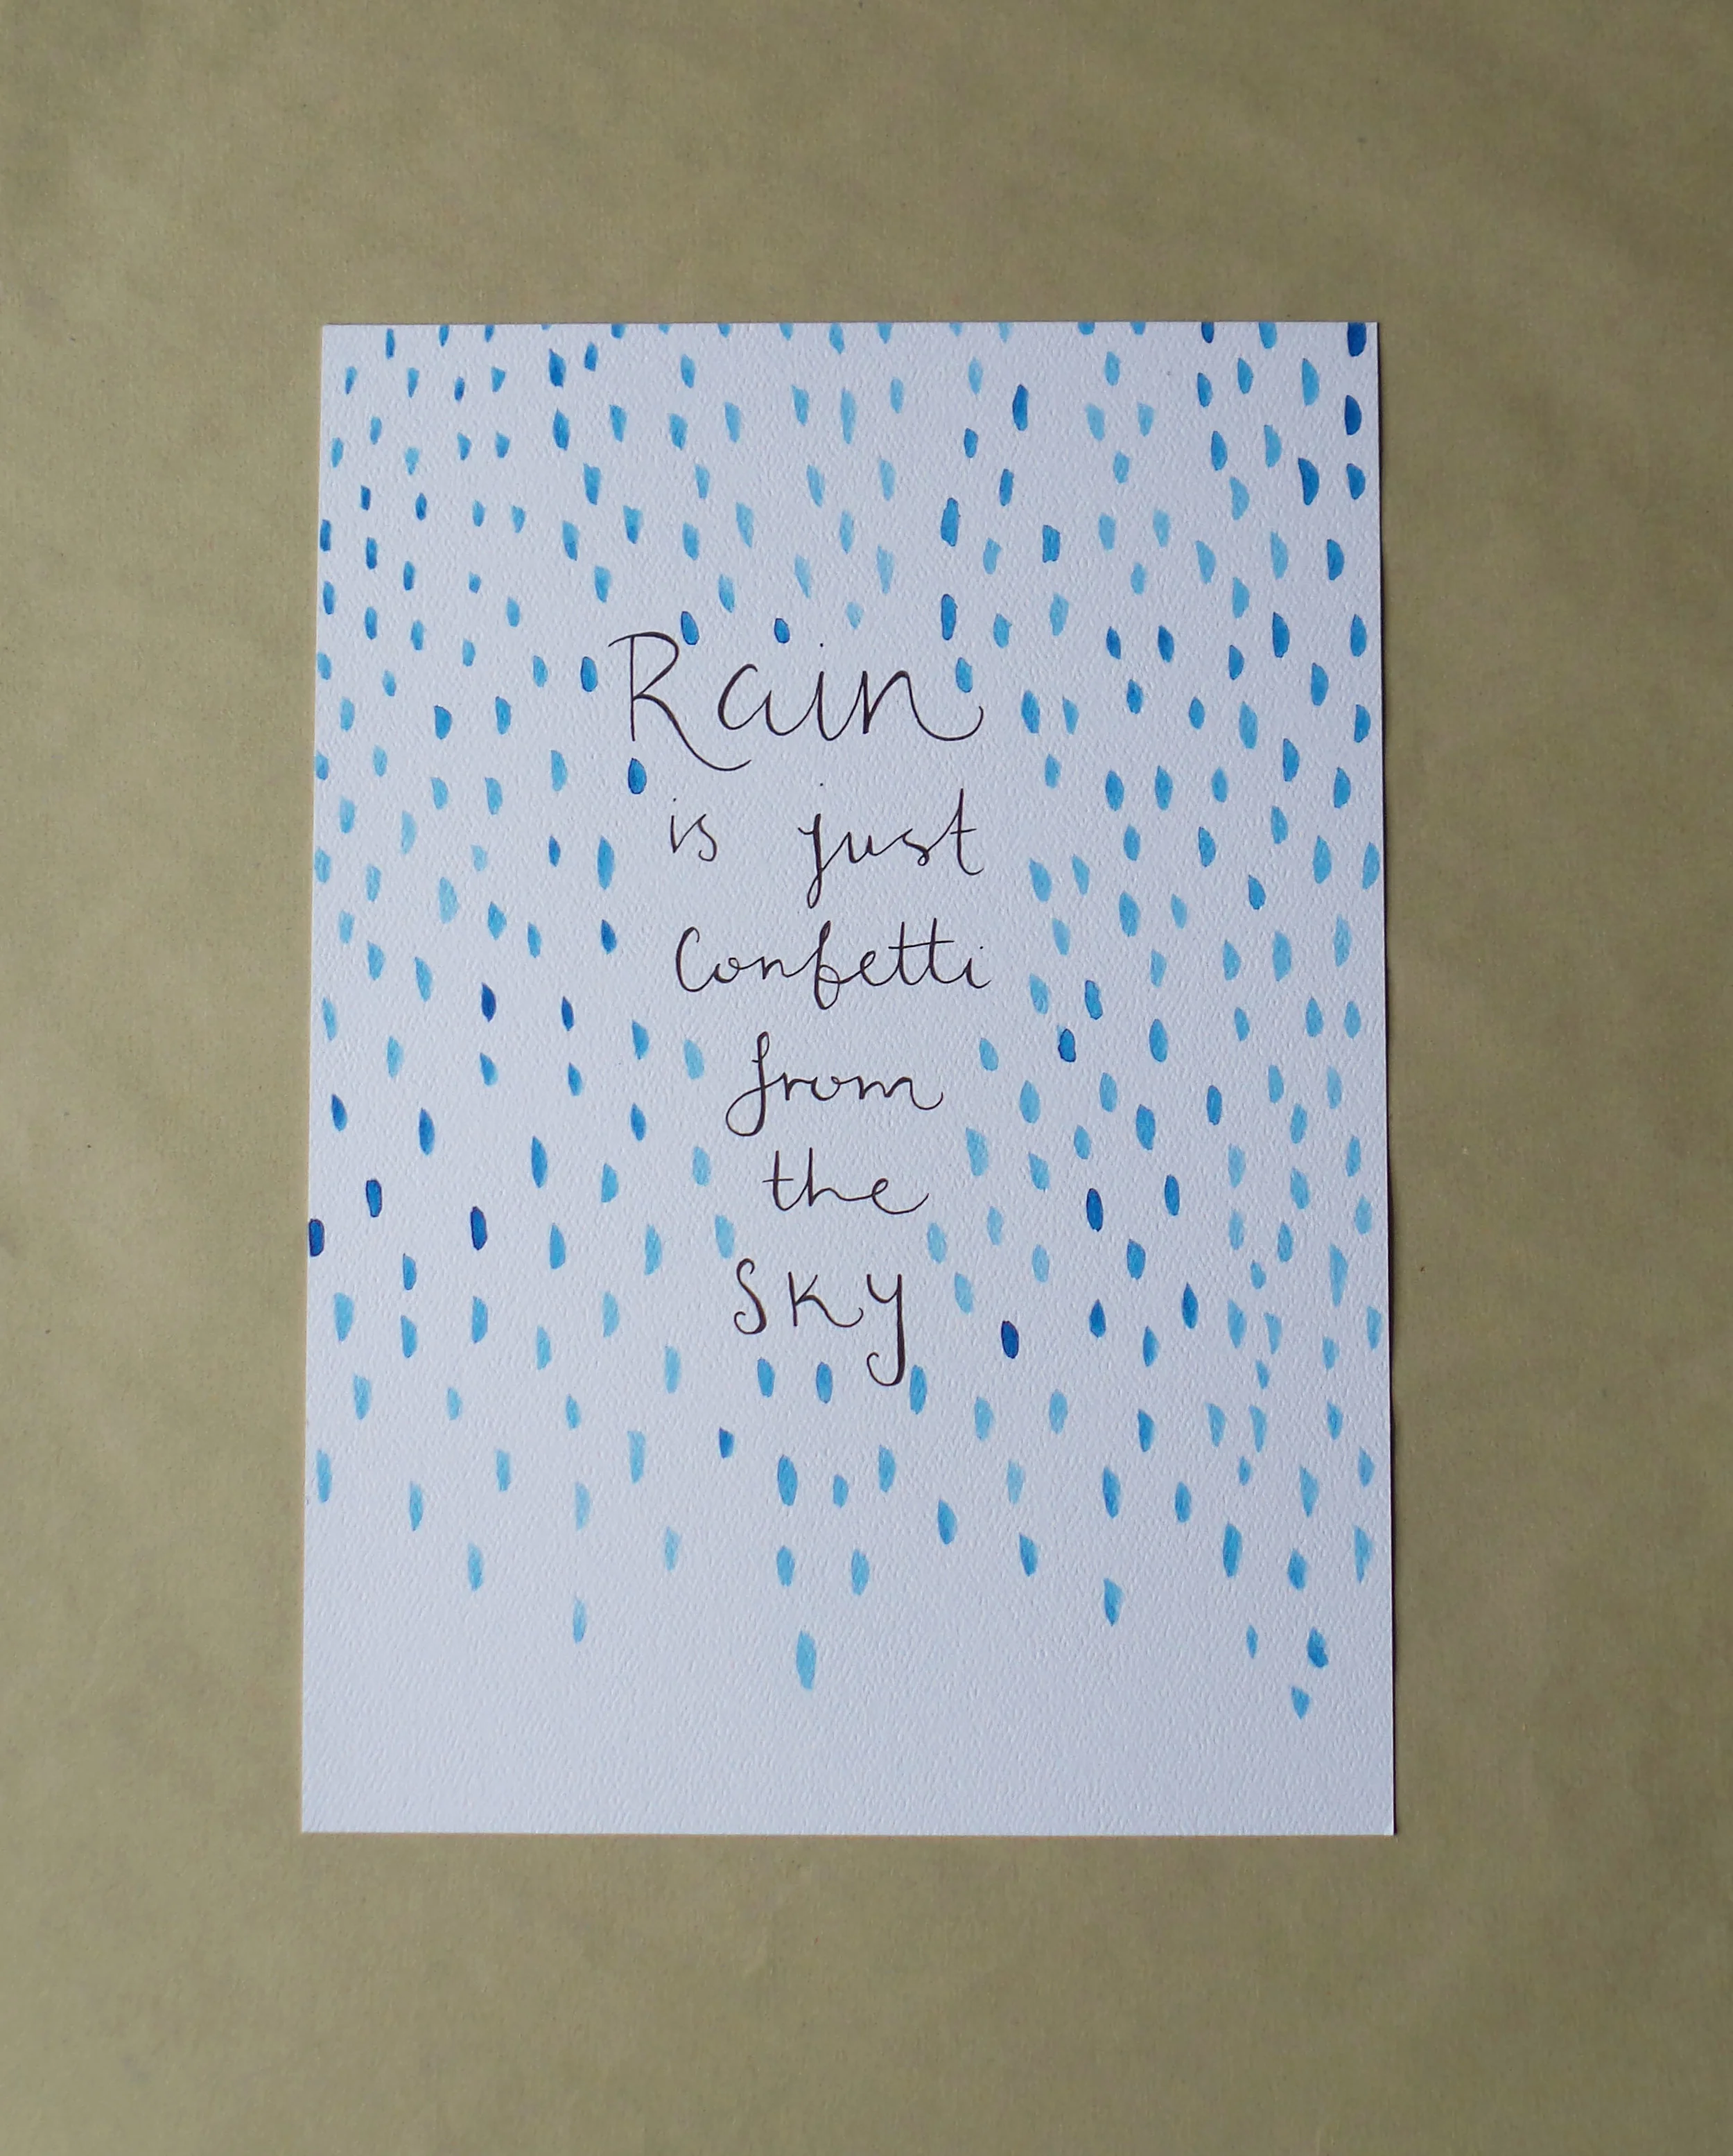 Rain
is just
Confetti
from
the
Sky